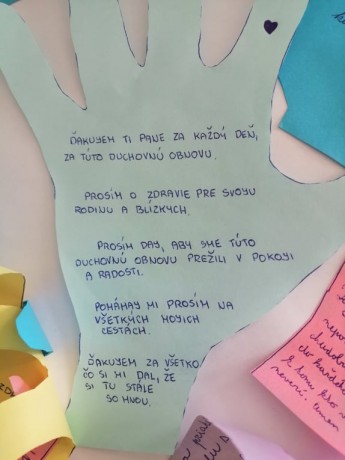 ĎAKUJEM TI PANE ZA KAŽDÝ DEŇ,
ZA TÚTO DUCHOVNÚ OBNOVU.
PROSÍM O ZDRAVIE PRE SVOJU
RODINU A BLÍZKYCH.
PROSÍM DAJ, ABY SME TÚTO
DUCHOVNÚ OBNOVU PREŽILI V POKOJI
A RADOSTI.
POMÁHAJ MI PROSÍM NA
VŠETKÝCH MOJICH
CESTÁCH.
ĎAKUJEM ZA VŠETKO
ČO SI MI DAL, ŽE
SI TU STÁLE
SO MNOU.